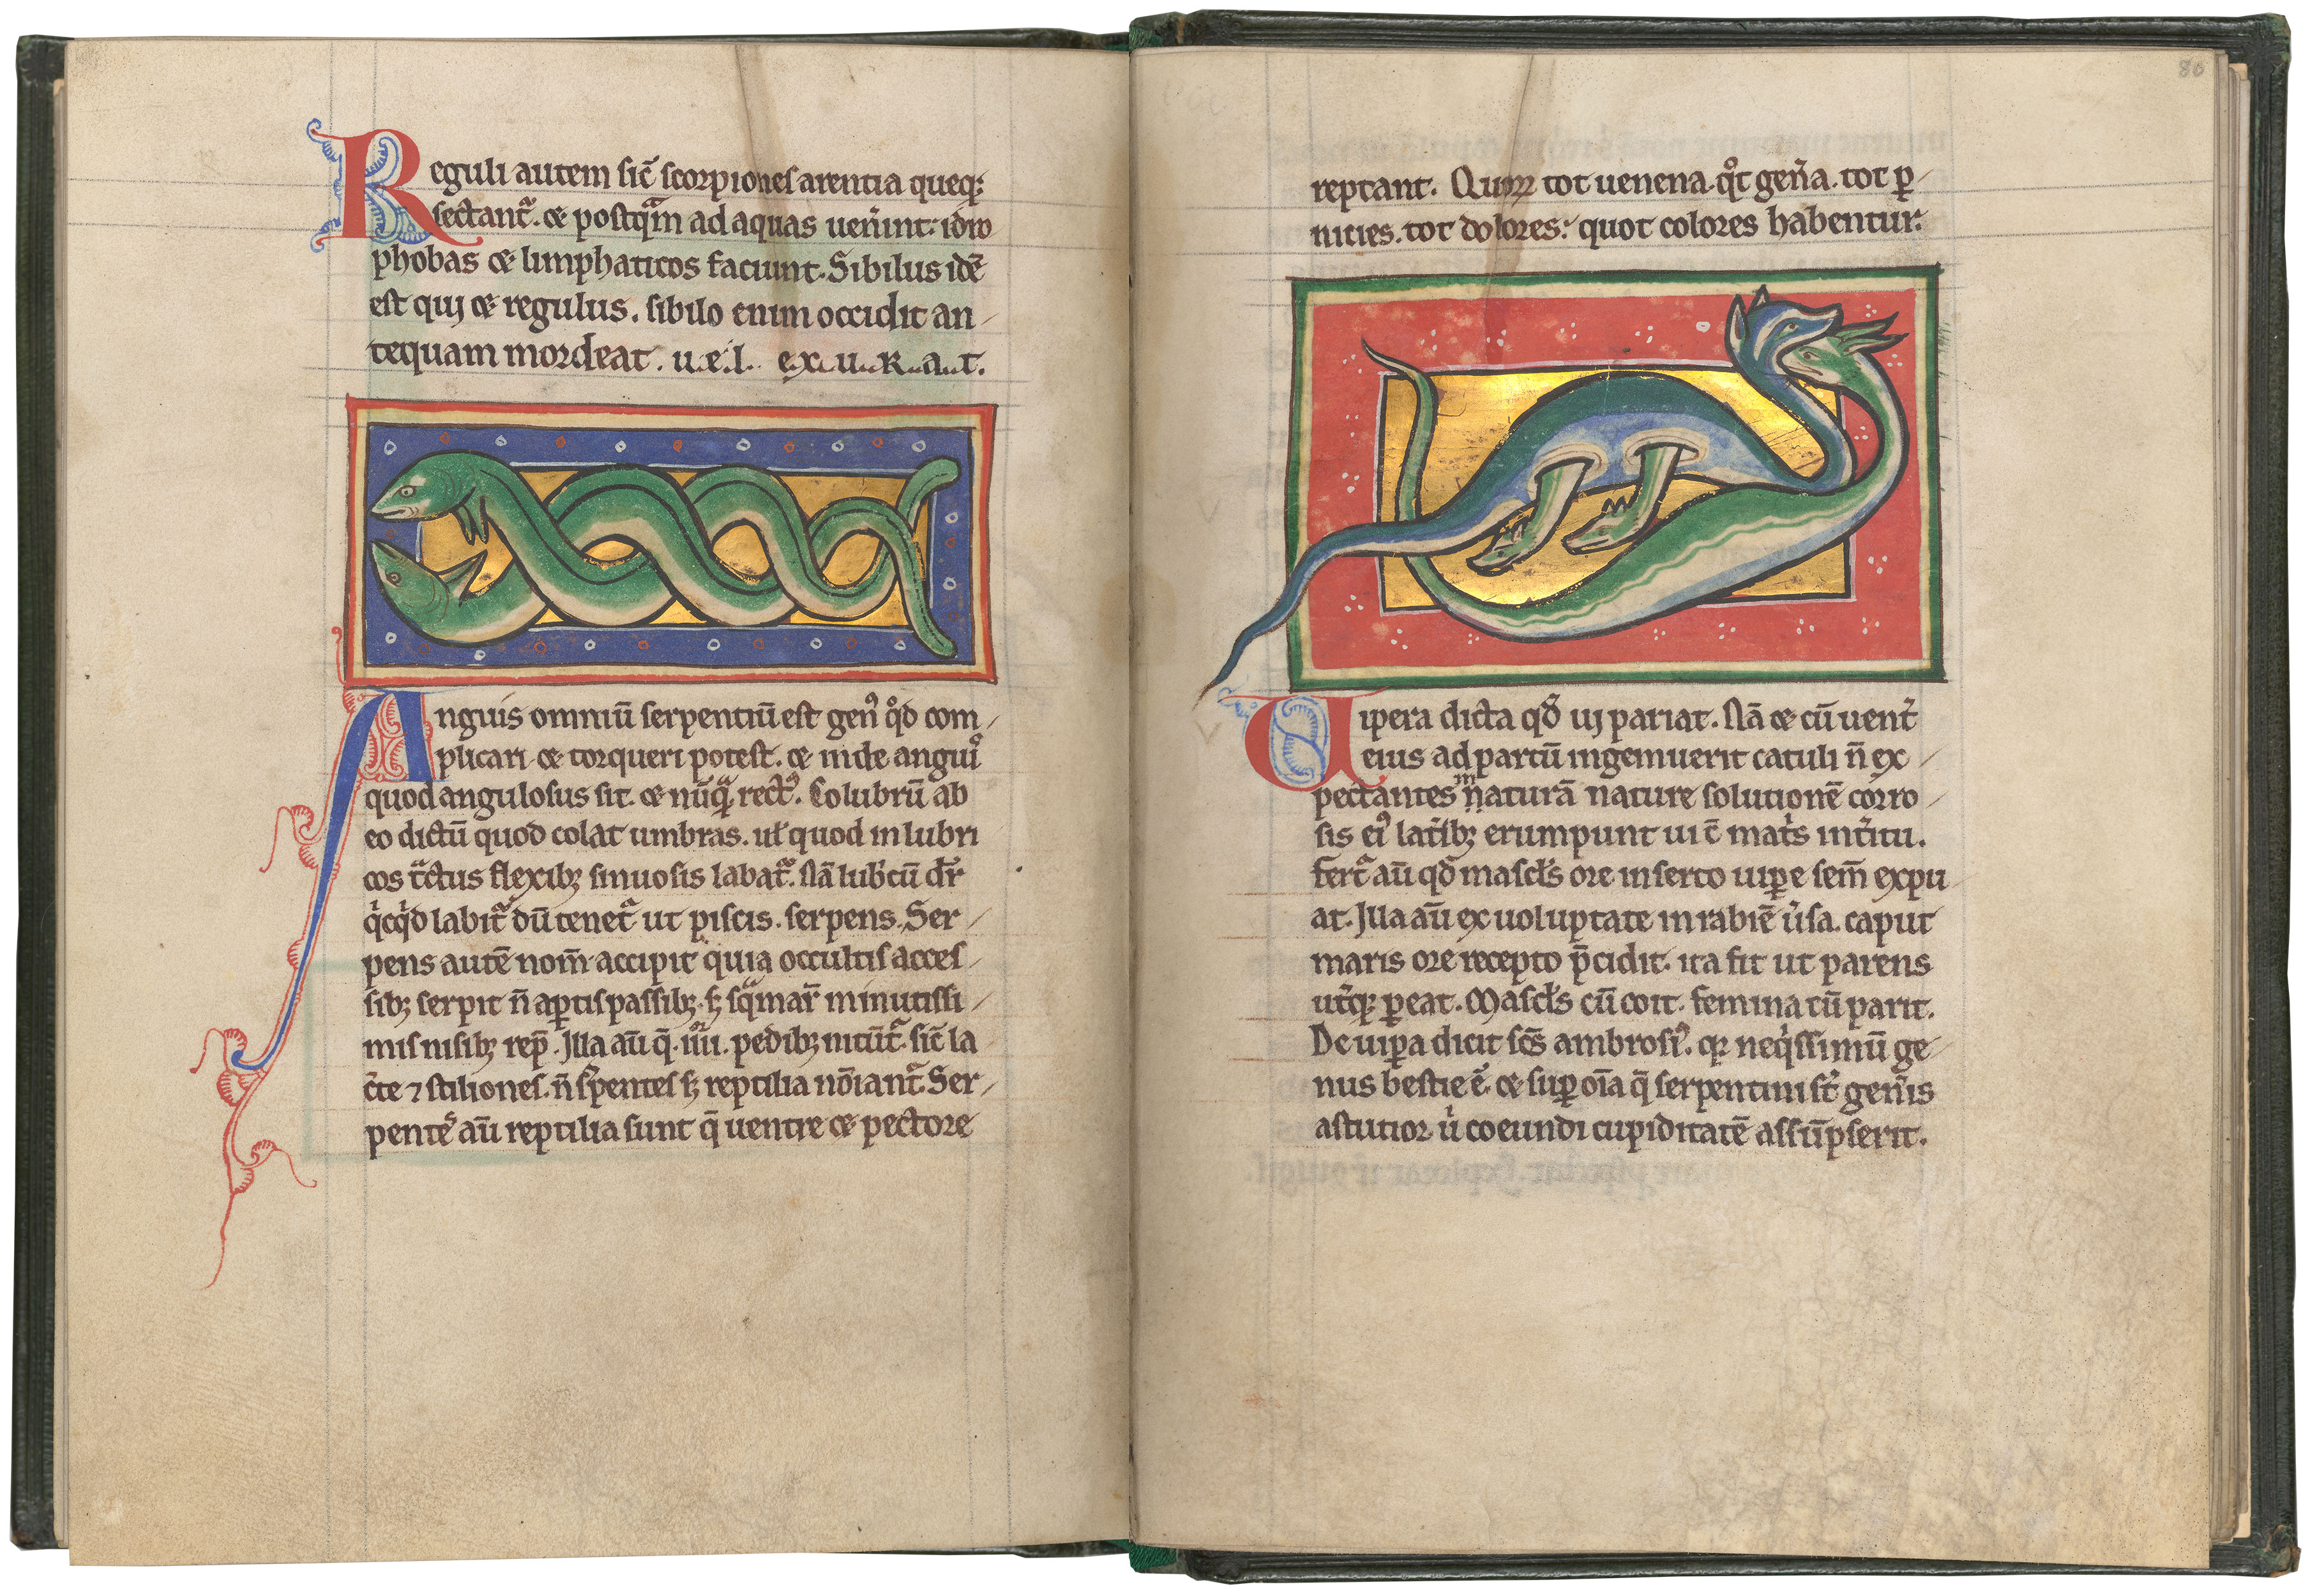 Reguli autem sic̄ scorpiones arentia queq;
sectant᷑. et postq̄m ad aquas uen̄int. idro
phobas et limphaticos faciunt. Sibilus idē
est qui et regulus. sibilo enim occidit an
tequam mordeat. u.e.l. e.x.u.R.a.t.
Anguis omniū serpentiū est genꝰ qd̄ com
plicari et torqueri potest. et inde anguiꝰ
quod angulosus sit. et nūq̄ rectꝰ. Colubrū ab
eo dictū quod colat umbras. ul̄ quod in lubri
cos tᷓctus flexibꝫ sinuosis labat᷑. Nā lub̄cū dr̄
qͥcqͥd labit᷑ dū tenet᷑ ut piscis. serpens. Ser
pens autē nom̄ accipit quia occultis acces
sibꝫ serpit n̄ aꝑtis passibꝫ. sꝫ sqᷓmaꝝ minutissi
mis nisibꝫ rep̄. Illa aū q̄ .iiii. pedibꝫ nitūt᷑. sic̄ la
c̄te ⁊ stiliones. n̄ s̄pentes sꝫ reptilia nōiant᷑. Ser
pentē aū reptilia sunt q̄ uentre et pectore
80
reptant. Quoꝝ tot uenena. qͦt gen̄a. tot ꝑ
nities. tot dolores: quot colores habentur.
Uipera dicta qd̄ ui pariat. Nā et cū uent̄
eius ad partū ingemuerit catuli n̄ ex
pectantes naturā nature solutionē corro
sis eiꝰ lat̄ibꝫ erumpunt ui c̄ mat̄s int̄itu.
Fert᷑ aū qd̄ mascl̄s ore inserto uiꝑe sem̄ expu
at. Illa aū ex uoluptate in rabiē ūsa. caput
maris ore recepto p̄cidit. ita fit ut parens
ut̄qꝫ ꝑeat. Mascl̄s cū coit. femina cū parit.
De uiꝑa dicit sc̄s ambrosiꝰ. qꝛ neqͥssimū ge
nus bestie ē. et suꝑ oīa q̄ serpentini st̄ gen̄is
astutior u̇ coeundi cupiditatē assūpserit.